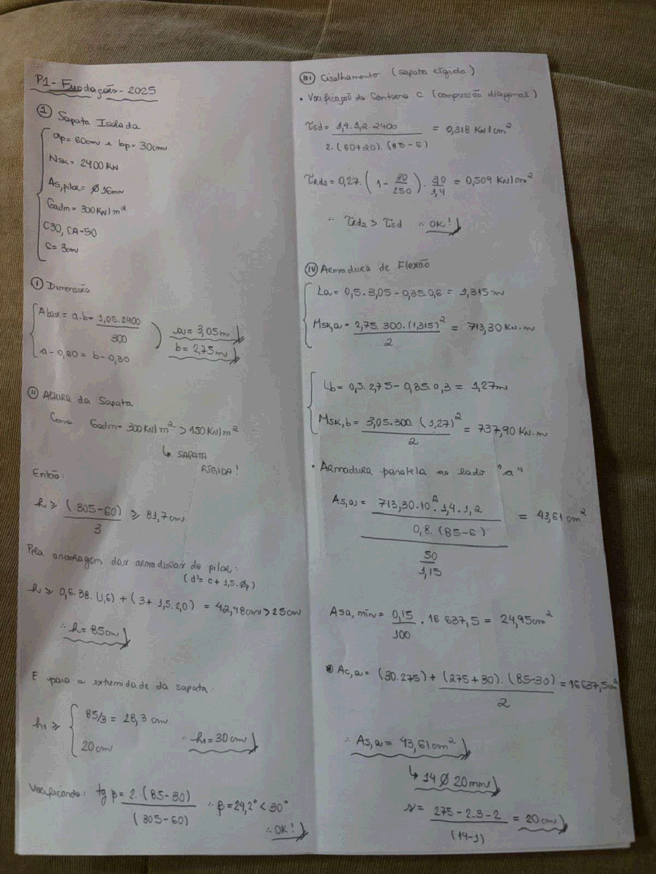 P1 - Fundações - 2025
① Sapata Isolada
ap = 60cm e bp = 30cm
Nsk = 2400 KN
As,pilar = Ø 16mm
σadm = 300 KN/m²
C30, CA-50
c = 3cm
Ⓘ Dimensão
Abase = a.b = 1,05.2400 / 300
a - 0,60 = b - 0,30
a = 3,05m
b = 2,75m
Ⓘⓘ Altura da Sapata
Como σadm = 300 KN/m² > 150 KN/m²
↳ SAPATA RÍGIDA!
Então:
h ≥ (305-60) / 3 ≥ 81,7cm
Pela ancoragem das armaduras do pilar:
(d' = c + 1,5.Øp)
h ≥ 0,6.38.(1,6) + (3+1,5.2,0) = 42,48cm > 25cm
∴ h = 85cm
E para a extremidade da sapata:
h₁ ≥ 85/3 = 28,3 cm
20cm
∴ h₁ = 30cm
Verificando: tg β = 2.(85-30) / (305-60) ∴ β = 24,2° < 30°
∴ OK!
III Cisalhamento (sapata rígida)
• Verificação do Contorno C (compressão diagonal)
τsd = 1,4.1,2.2400 / 2.(60+20).(85-6) = 0,318 KN/cm²
τRd2 = 0,27.(1 - 30/250).30/1,4 = 0,509 KN/cm²
∴ τRd2 > τsd ∴ OK!
IV Armadura de Flexão
La = 0,5.3,05 - 0,35.0,6 = 1,315m
Msk,a = 2,75.300.(1,315)² / 2 = 713,30 KN.m
Lb = 0,5.2,75 - 0,35.0,3 = 1,27m
Msk,b = 3,05.300.(1,27)² / 2 = 737,90 KN.m
• Armadura paralela ao lado "a"
As,a = 713,30.10².1,4.1,2 / 0,8.(85-6) / 50/1,15 = 43,61cm²
Asa,mín = 0,15/100 . 16 637,5 = 24,95cm²
Ac,a = (30.275) + (275+30).(85-30) / 2 = 16637,5cm²
∴ As,a = 43,61cm²
↳ 14 Ø 20mm
s = 275-2.3-2 / (14-1) = 20cm